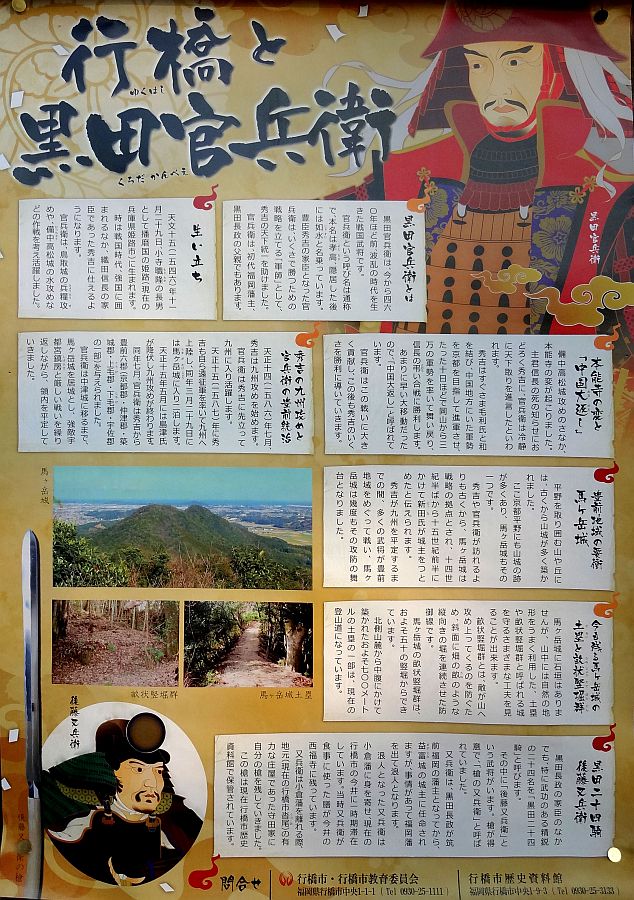 行橋と
ゆくはし
黒田官兵衛
くろだ かんべえ
黒田官兵衛
黒田官兵衛とは
黒田官兵衛は、今から四六
〇年ほど前、波乱の時代を生
きた戦国武将です。
官兵衛という呼び名は通称
で、本名は孝高、隠居した後
には如水と名乗っています。
豊臣秀吉の家臣となった官
兵衛は、いくさで勝つための
戦略を立てる「軍師」として、
秀吉の天下統一を助けました。
官兵衛は、初代福岡藩主、
黒田長政の父親でもあります。
生い立ち
天文十五(一五四六)年十一
月二十九日、小寺職隆の長男
として播磨国の姫路(現在の
兵庫県姫路市)に生まれます。
時は戦国時代、後国に囲
まれるなか、織田信長の家
臣であった秀吉に仕えるよ
うになります。
官兵衛は、鳥取城の兵糧攻
めや、備中高松城の水攻めな
どの作戦を考え活躍しました。
本能寺の変と
「中国大返し」
備中高松城攻めのさなか、
本能寺の変が起こりました。
主君信長の死の知らせにお
どろく秀吉に、官兵衛は冷静
に天下取りを進言したといわ
れます。
秀吉はすぐさま毛利氏と和
を結び、中国地方にいた軍勢
を京都を目指して進軍させ、
たった十日ほどで岡山から三
万の軍勢を率いて舞い戻り、
信長の弔い合戦に勝利します。
あまりに早い大移動だった
ので、「中国大返し」と呼ばれて
います。
官兵衛はこの戦いに大き
く貢献し、この後も秀吉のいく
さを勝利に導いていきます。
秀吉の九州攻めと
官兵衛の豊前統治
天正十四(一五八六)年七月、
秀吉は九州攻めを始めます。
官兵衛は秀吉に先立って
九州に入り活躍します。
天正十五(一五八七)年に秀
吉も自ら遠征軍を率いて九州へ
上陸し、同年三月二十九日に
は馬ヶ岳城に入り一泊します。
天正十五年五月には島津氏
が降伏し九州攻めが終わります。
同年七月、官兵衛は秀吉から
豊前六郡(京都郡・仲津郡・築
城郡・上毛郡・下毛郡・宇佐郡
の一部)を与えられました。
官兵衛は中津城に移るまで、
馬ヶ岳城を居城とし、強敵宇
都宮鎮房と厳しい戦いを繰り
返しながら、領内を平定して
いきました。
豊前地域の要衝
馬ヶ岳城
平野を取り囲む山や丘に
は、古くから山城が多く築か
れました。
ここ京都平野にも山城の跡
が多くあり、馬ヶ岳城もその
一つです。
秀吉や官兵衛が訪れるよ
りも古くから、馬ヶ岳城は
戦略の拠点とされ、十四世
紀半ばから十五世紀前半に
かけて新田氏が城主をつと
めたと伝えられます。
秀吉が九州を平定するま
での間、多くの武将が豊前
地域をめぐって戦い、馬ヶ
岳城は幾度もその攻防の舞
台となりました。
馬ヶ岳城
畝状竪堀群
馬ヶ岳城土塁
今も残る馬ヶ岳城の
土塁と畝状竪堀群
馬ヶ岳城に石垣はありま
せんが、山中には自然の地
形をうまく利用した、土塁
や畝状竪堀群と呼ばれる城
を守るさまざまな工夫を見
ることが出来ます。
畝状竪堀群とは、敵が山へ
攻め上ってくるのを防ぐた
め、斜面に畑の畝のような
縦向きの堀を連続させた防
御線です。
馬ヶ岳城の畝状竪堀群は、
およそ五十の竪堀からでき
ています。
北側山麓から中腹にかけて
築かれたおよそ七〇〇メート
ルの土塁の一部は、現在の
登山道になっています。
黒田二十四騎
後藤又兵衛
黒田長政の家臣のなか
でも、特に武功のある精鋭
の二十四名を、「黒田二十四
騎」と呼びます。
その中に、後藤又兵衛と
いう武将がいます。槍が得
意で、「槍の又兵衛」と呼ば
れていました。
又兵衛は、黒田長政が筑
前福岡の藩主となってから、
益富城の城主に任命され
ますが、事情があって福岡藩
を出て浪人となります。
浪人となった又兵衛は、
小倉藩に身を寄せ、現在の
行橋市の今井に一時期滞在
しています。当時又兵衛が
食事に使った膳が今井の
西福寺に残っています。
又兵衛は小倉藩を離れる際、
地元(現在の行橋市沓尾)の有
力な庄屋であった守田家に
自分の槍を残していきました。
この槍は現在行橋市歴史
資料館で保管されています。
後藤又兵衛
後藤又兵衛の槍
問合せ
行橋市・行橋市教育委員会
福岡県行橋市中央1-1-1 (Tel 0930-25-1111)
行橋市歴史資料館
福岡県行橋市中央1-9-3 (Tel 0930-25-3133)